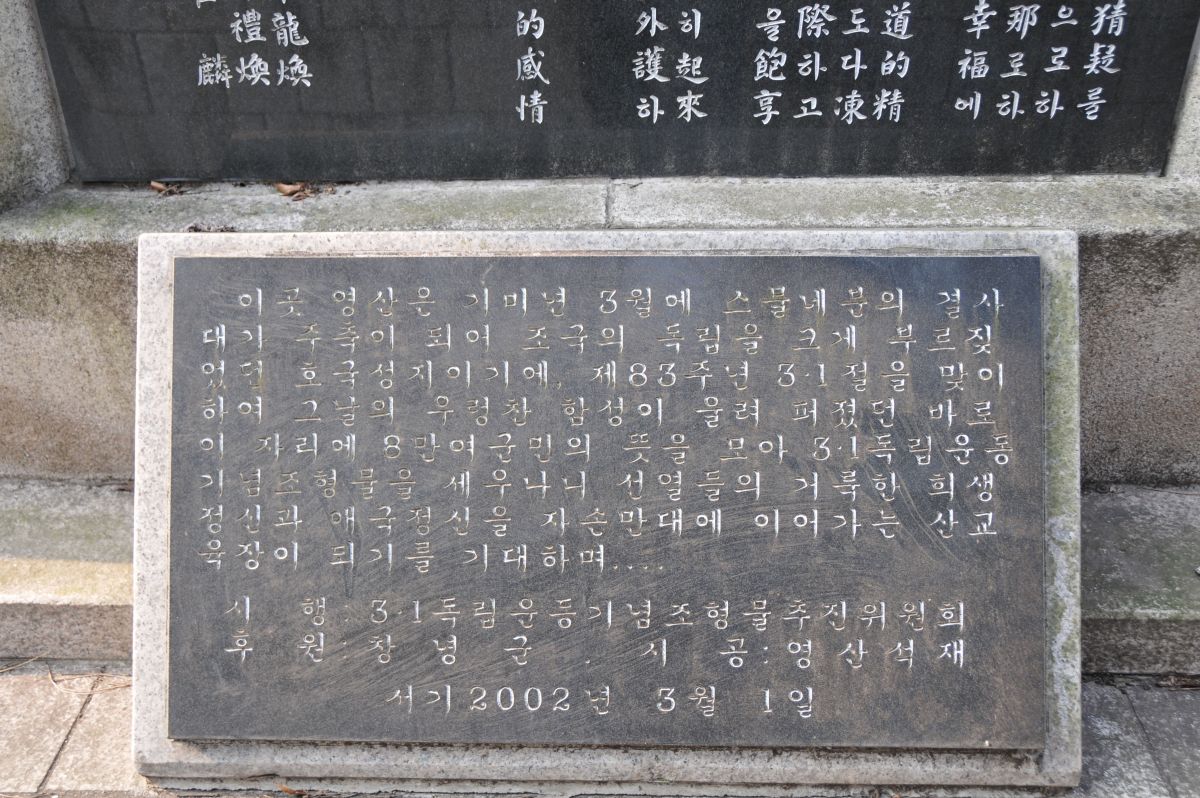 猜疑를
으로하
那로하
幸福에
道的精
도다凍
際하고
을飽享
히起來
外護하
的感情
龍煥
禮煥
麟
이곳 영산은 기미년 3월에 스물네분의 결사
대가 주축이 되어 조국의 독립을 크게 부르짖
었던 호국성지이기에, 제83주년 3·1절을 맞이
하여 그날의 우렁찬 함성이 울려 퍼졌던 바로
이 자리에 8만여군민의 뜻을 모아 3·1독립운동
기념조형물을 세우나니 선열들의 거룩한 희생
정신과 애국정신을 자손만대에 이어가는 산교
육장이 되기를 기대하며....
시 행 : 3·1독립운동기념조형물추진위원회
후 원 : 창 녕 군 . 시 공 : 영산석재
서기2002년 3월 1일